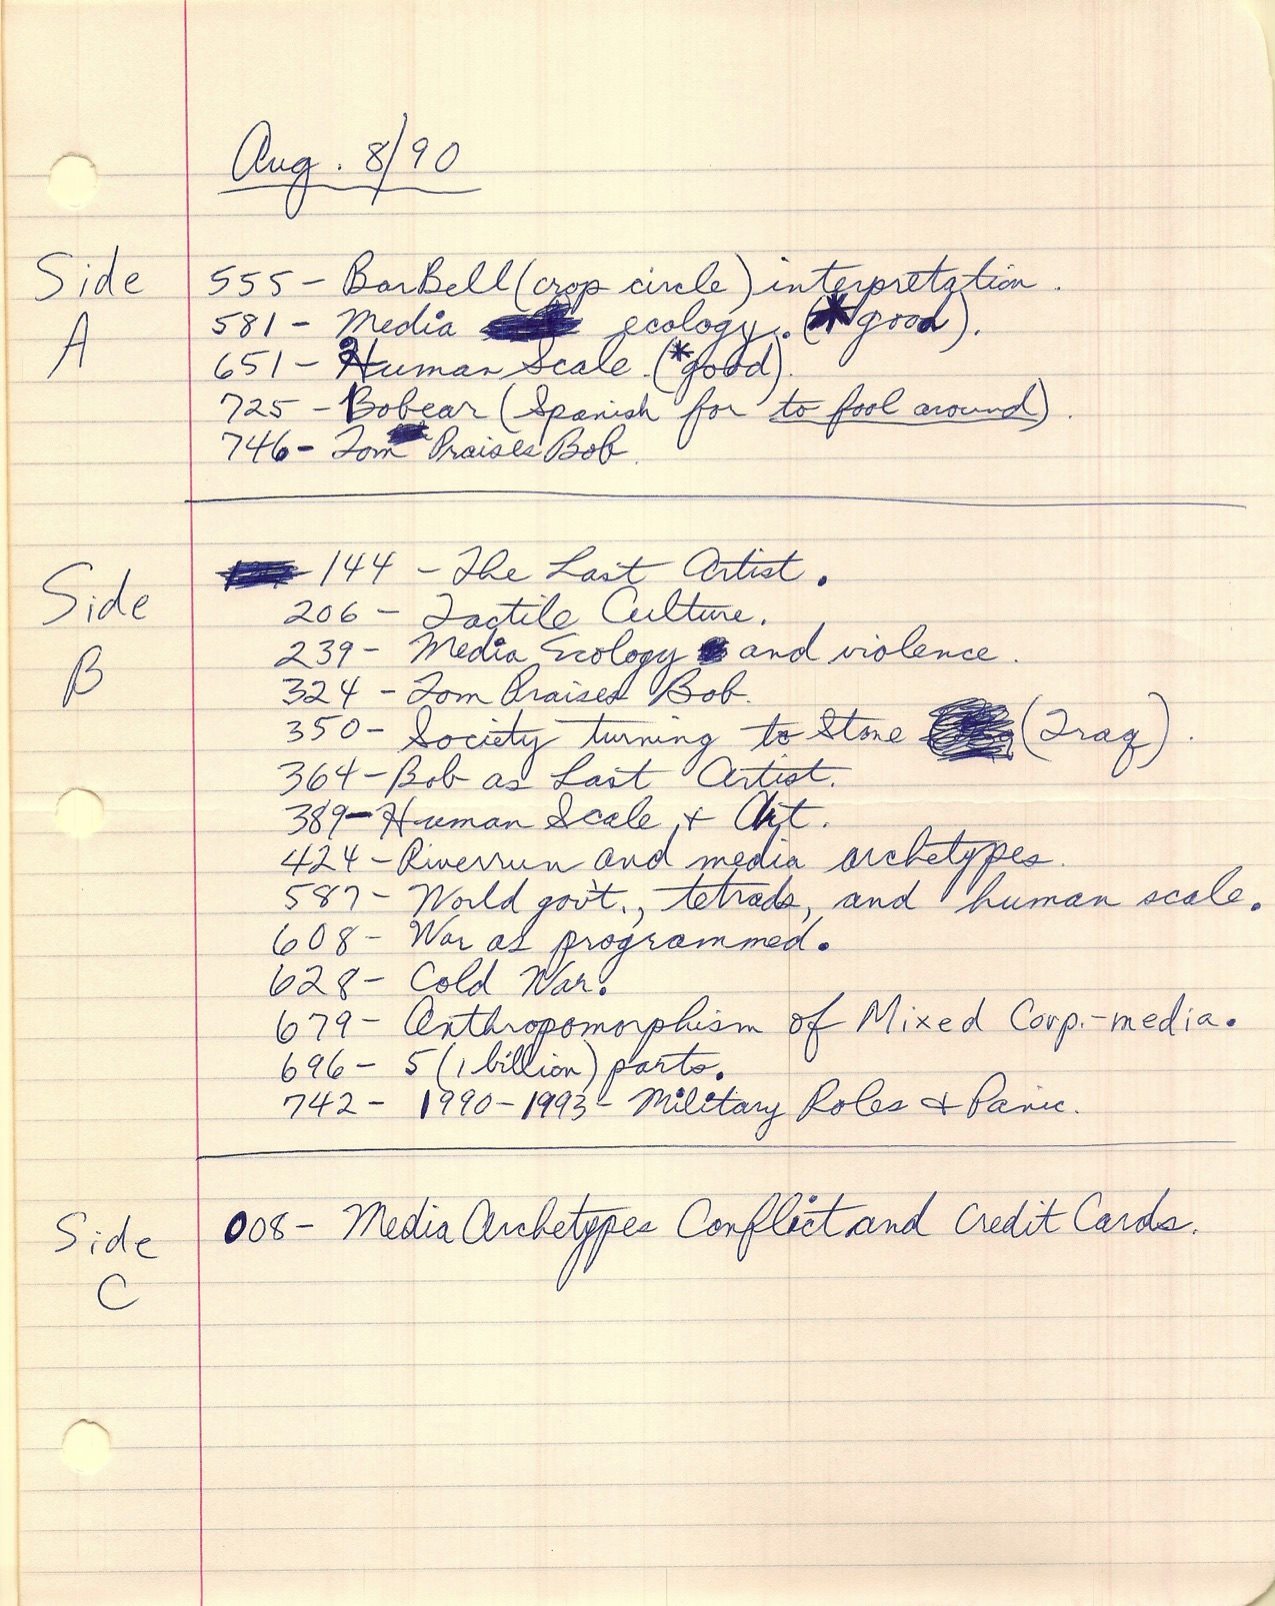 Aug. 8/90
Side A
555 - BarBell (crop circle) interpretation.
581 - Media ecology. (*good).
651 - Human Scale. (*good).
725 - Bobear (Spanish for to fool around).
746 - Tom Praises Bob.
Side B
144 - The Last Artist.
206 - Tactile Culture.
239 - Media Ecology and violence.
324 - Tom Praises Bob.
350 - Society turning to Stone (Iraq).
364 - Bob as Last Artist.
389 - Human Scale + Art.
424 - Riverrun and media archetypes.
587 - World gov't., tetrads, and human scale.
608 - War as programmed.
628 - Cold War.
679 - Anthropomorphism of Mixed Corp.-media.
696 - 5 (1 billion) parts.
742 - 1990-1993 - Military Roles & Panic.
Side C
008 - Media Archetypes Conflict and Credit Cards.